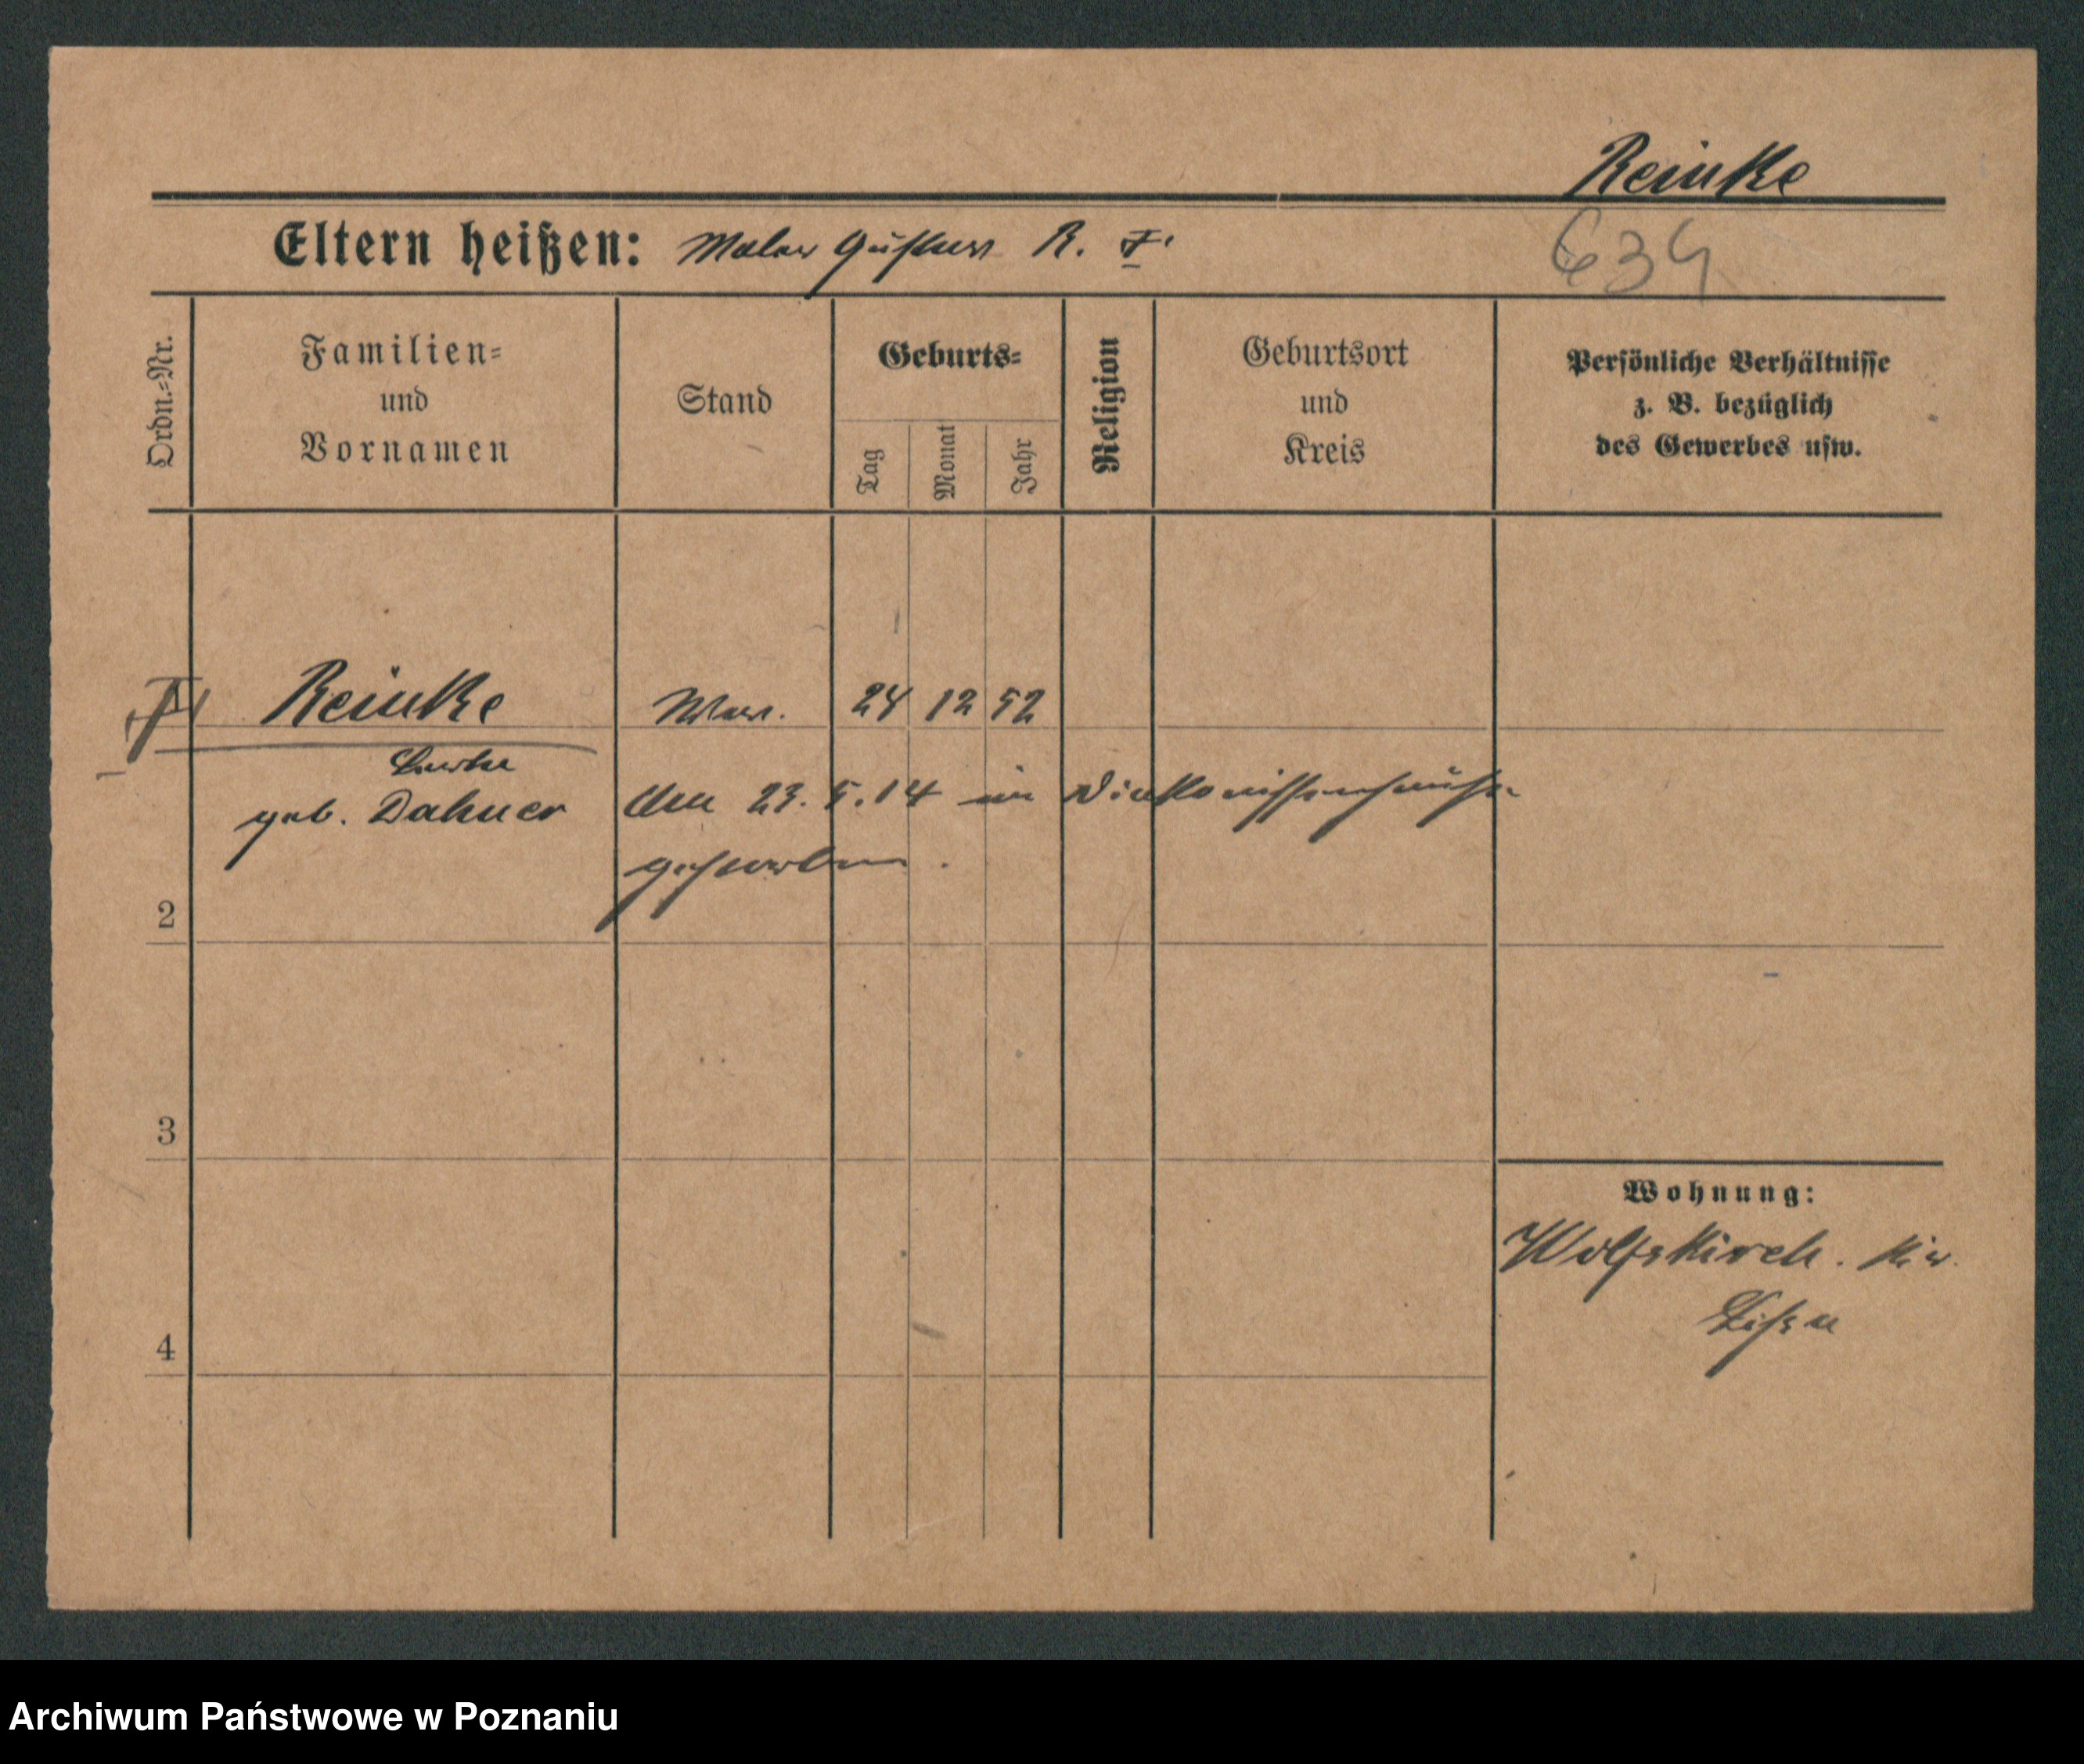 Reinke
Eltern heißen: Maler Gustav R. †.
634
Ordn.-Nr.
Familien-
und
Vornamen
Stand
Geburts-
Tag
Monat
Jahr
Religion
Geburtsort
und
Kreis
Persönliche Verhältnisse
z. B. bezüglich
des Gewerbes usw.
Reinke Ww. 24 12 52
geb. Dahner Am 23. 5. 14 im Diakonissenhause
gestorben.
2
3
4
Wohnung:
Wolfskirch. Kr.
Lissa
Archiwum Państwowe w Poznaniu